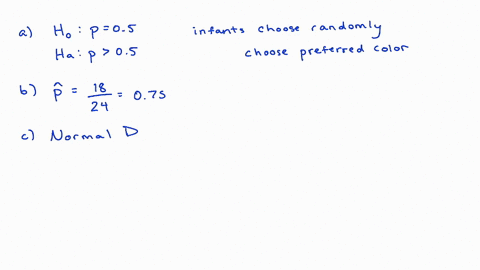 a) H₀ : p = 0.5 infants choose randomly
Ha : p > 0.5 choose preferred color
b) p̂ = 18/24 = 0.75
c) Normal D